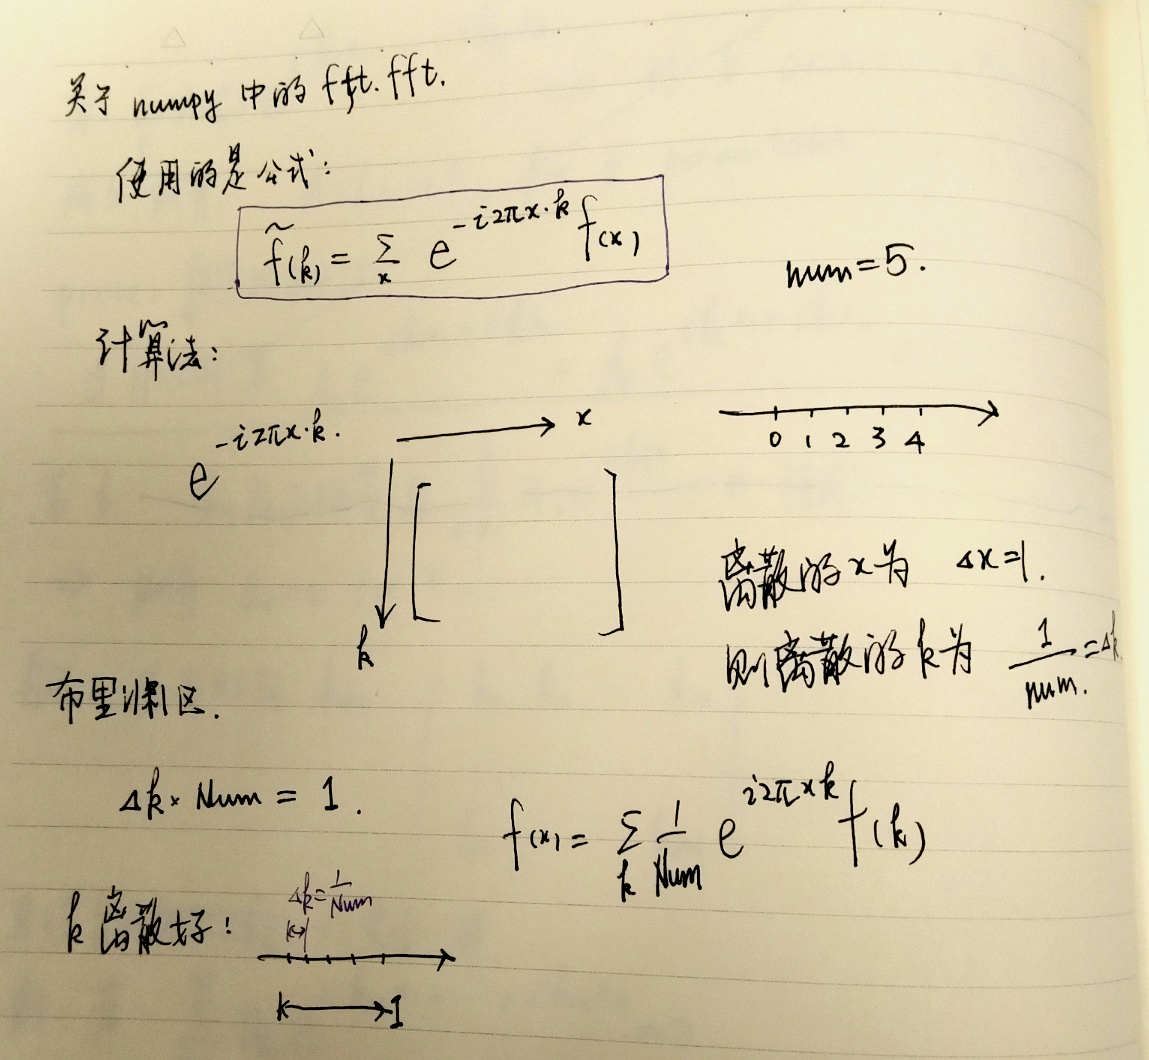 关于 numpy 中的 fft.fft.
使用的是公式:
f̃(k) = Σ_x e^{-i2πx·k} f(x)
num=5.
计算法:
e^{-i2πx·k}.
x
0 1 2 3 4
离散的x为 Δx=1.
k
则离散的k为 1/num. =Δk.
布里渊区.
Δk × Num = 1.
f(x) = Σ_k 1/Num e^{i2πxk} f(k)
Δk=1/Num
k 离散好!
1